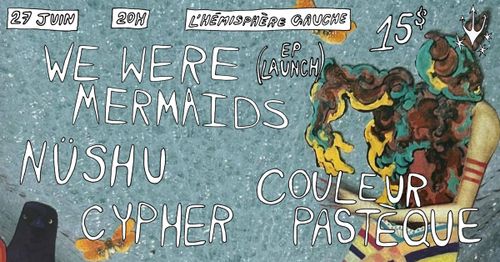 27 JUIN 20H L'HÉMISPHÈRE GAUCHE 15$
WE WERE MERMAIDS
(EP LAUNCH)
NÜSHU
CYPHER
COULEUR
PASTÈQUE